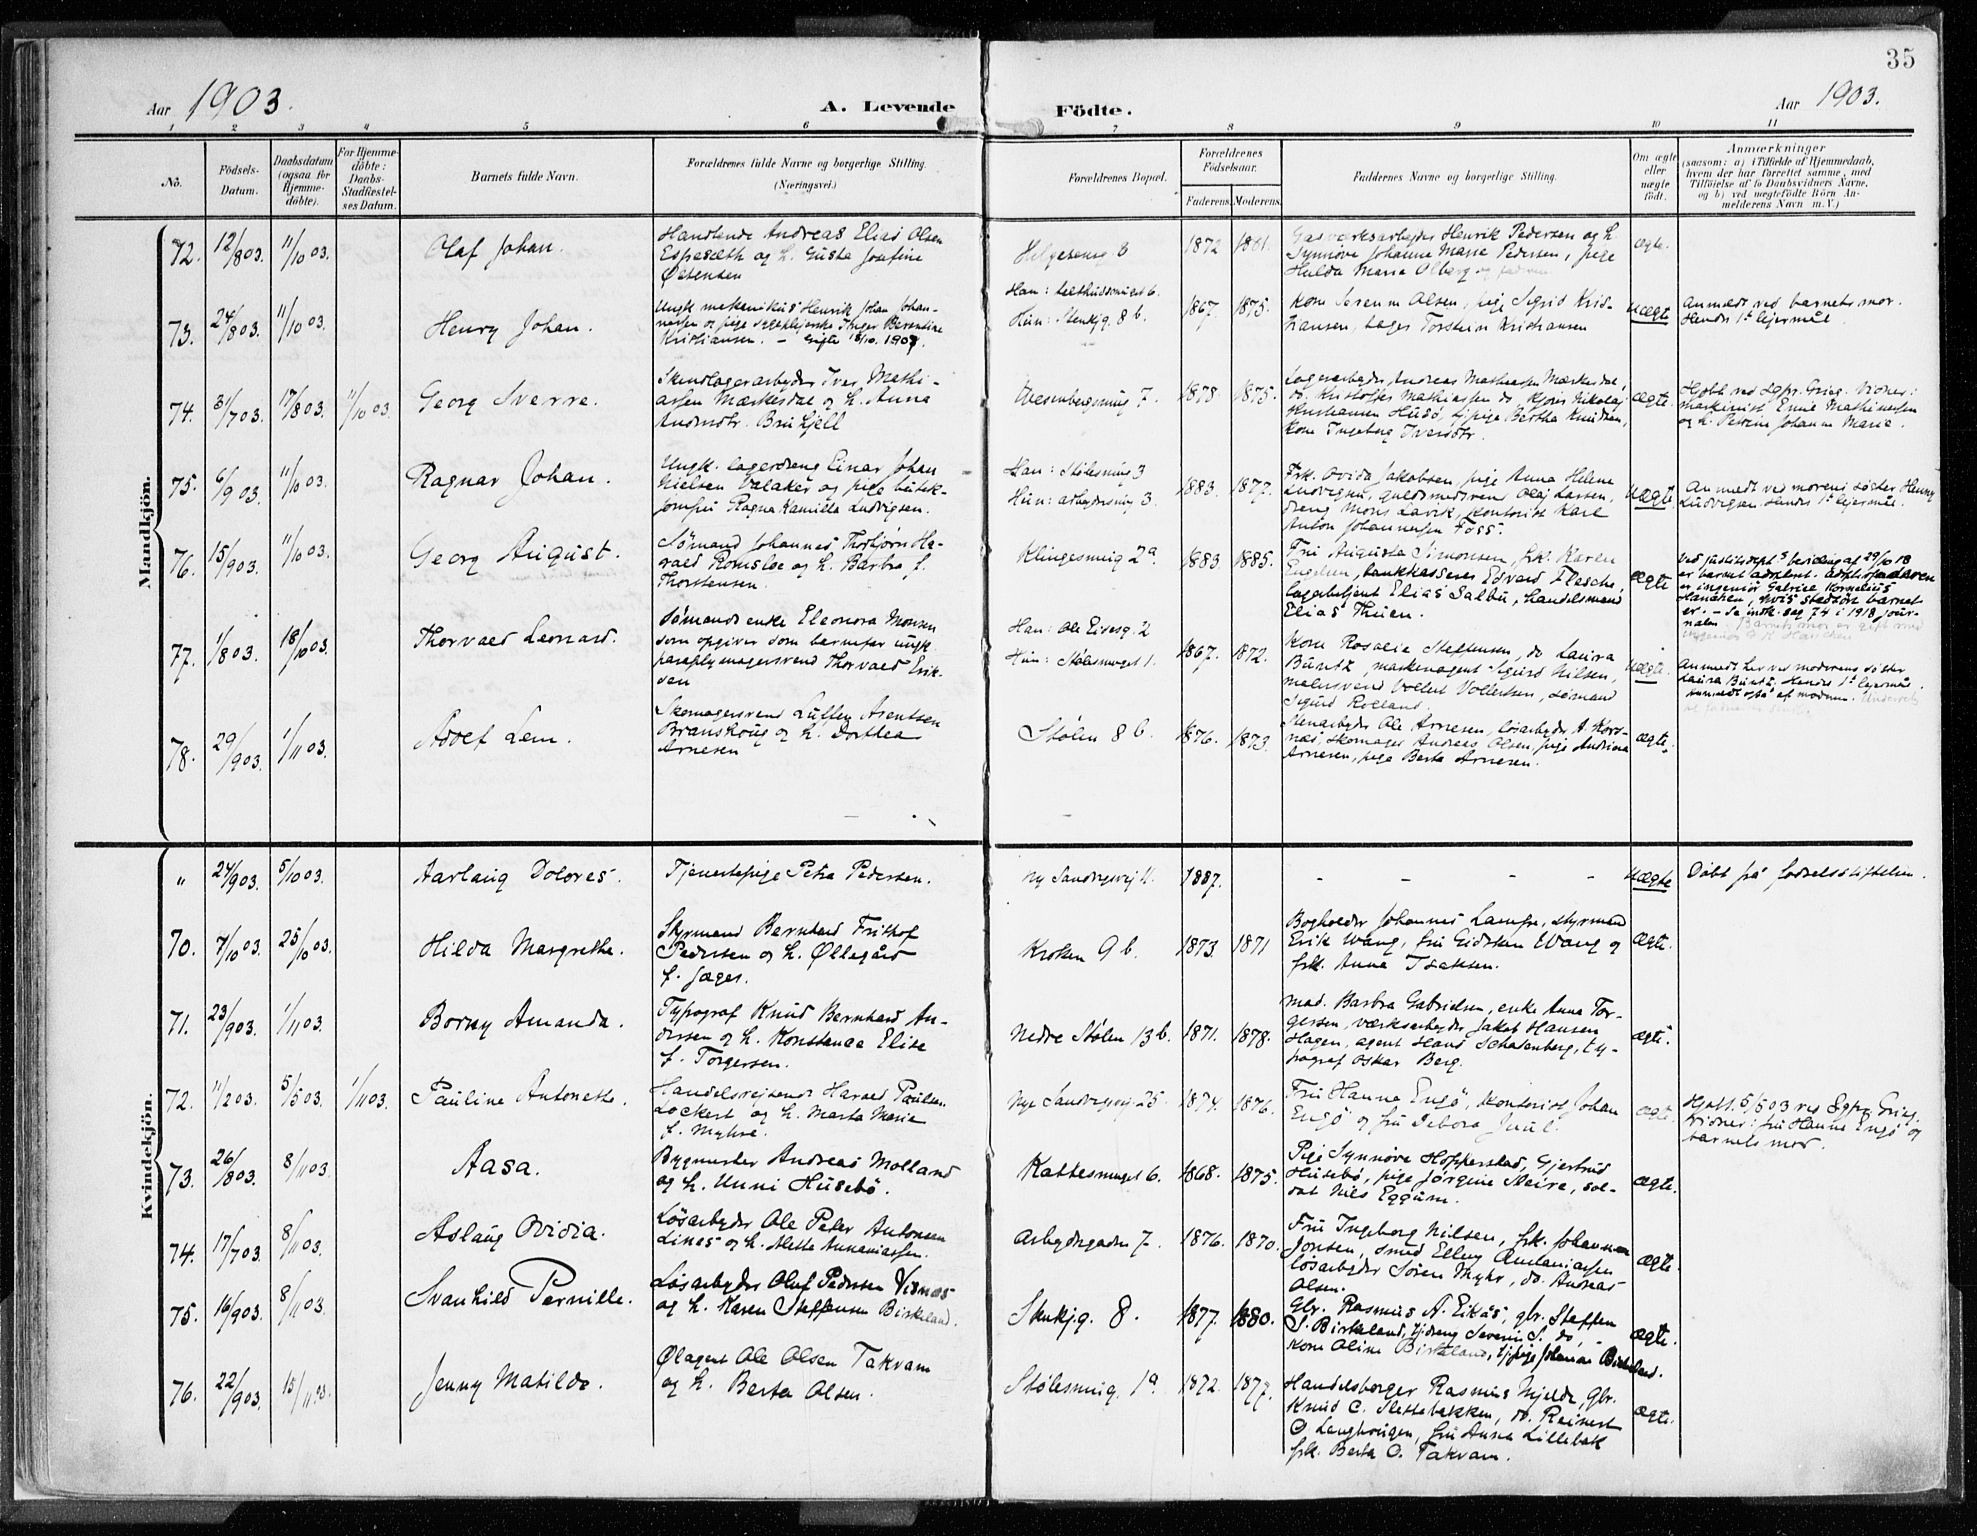 35
Aar 1903. A. Levende Födte. Aar 1903.
1 2 3 4 5 6 7 8 9 10 11
No. Födsels-Datum. Daabsdatum (ogsaa for Hjemme-döbte). For Hjemme-döbte: Daabs-Stadfæstel-ses Datum. Barnets fulde Navn. Forældrenes fulde Navne og borgerlige Stilling. (Næringsvei.) Forældrenes Bopæl. Forældrenes Födselsaar. Faderens. Moderens. Faddernes Navne og borgerlige Stilling. Om ægte eller uægte födt. Anmærkninger
(saasom: a) i Tilfælde af Hjemmedaab,
hvem der har forrettet samme, med
Tilföielse af to Daabsvidners Navne,
og b) ved uægtefödte Börn An-
melderens Navn m. V.)
Mandkjön.
72. 12/8 03. 11/10 03. Olaf Johan.
Handlende Andreas Elias Olsen
Espeseth og h. Gusta Josefine
1872 1881.
Gasværksarbeyder Henrik Pedersen og h.
Synnöve Johanne Marie Pedersen, pige
Hulda Marie Olberg
ægte.
73. 24/8 03. 11/10 03. Henry Johan.
Ungk. mekanikus Henrik Johan Johan-
nessen og pige sygeplejerske Inger Berentine
Kristiansen.
Hun: Stenkjg. 8 b. 1867. 1875.
Kone Serenne Olsen, pige Sigrid Kris-
tiansen, bager Torstein Kristiansen
uægte
Anmeldt ved barnets mor.
Hendes 1st lejermål.
74. 31/7 03. 17/8 03. 11/10 03. Georg Sverre.
Skindlagerarbeyder Iver Mathi-
assen Mærkesdal og h. Anna
Andersdtr. Brukjell
7. 1878. 1875.
Lagerarbeyder Andreas Mathiassen Mærkesdal,
do. Kristoffer Mathiassen do, Nikolaj
Kristiansen Husö, tj.pige Bertha Knudsen,
kone Ingeborg Iversdtr.
ægte.
Hjdbt. ved Sgpr. Grieg. Vidner:
maskinist Emil Mathiassen
og h. Petrine Johanne Marie.
75. 6/9 03. 11/10 03. Ragnar Johan.
Ungk. lagerdreng Einar Johan
Nielsen Valaker og pige butik-
jomfru Ragna Kamilla Ludvigsen.
Han: Stölesmug 3
Hun: arbeydersmug 3. 1883. 1877.
Frk. Ovida Jakobsen, pige Anna Helene
Ludvigsen, guldsmedsvend Olaf Larsen,
dreng Mons Lavik, kontorist Karl
Anton Johannessen Foss.
uægte
Anmeldt ved morens söster Henny
Ludvigsen. Hendes 1st lejermål.
76. 15/9 03. 11/10 03. Georg August.
Sömand Johannes Thorbjørn Ha-
rald Romsloe og h. Barbra f.
Thorstensen.
Klingesmug 2a. 1883. 1885.
Fru Augusta Simonsen, frk. Karen
Engelsen, bankkasserer Edvard Flesche,
lagerbetjent Elias Salbu, handelsmand
Elias Thuen.
ægte
Ved justitsdept.s bevilling af 29/10 18
er barnet adoptert. Adoptivfaderen
er ingeniör Gabriel Kornelius
Hanchen, hvis stedsön barnet
er. – Se indk. sag 74 i 1918 jour-
nalen. Barnets mor er gift med
77. 1/8 03. 18/10 03. Thorvald Leonard.
Sömands enke Eleonora Monsen
som opgiver som barnefar ungk.
paraplymagersvend Thorvald Erik-
sen
Han: Ole Eidesg. 2
Hun: Stölesmuget 1. 1867. 1872.
Kone Rosalie Steffensen, do Laura
Buntz, maskinagent Sigurd Nilsen,
malersvend Vollert Vollertsen, sömand
Sigurd Rolland.
uægte.
Anmeldt her ved moderens söster
Laura Buntz. Hendes 1st lejermål.
Anmeldt også af moderen.
78. 29/9 03. 1/11 03. Adolf Lem.
Skomagersvend Lutken Arentsen
Branskoug og h. Dorthea
Arnesen
Stölen 8 b. 1876. 1873.
Stenarbeyder Ole Arnesen, lösarbeyder A. Kors-
næs, skomager Andreas Olsen, pige Andrina
Arnesen, pige Berta Arnesen.
ægte.
Kvindekjön.
" 24/9 03. 5/10 03. Aarlaug Dolores.
Tjenestepige Petra Pedersen.
Ny Sandvigsvej 1887.
- - - -
uægte
Döbt på födselsstiftelsen.
70. 7/10 03. 25/10 03. Hilda Margrethe.
Styrmand Bernhard Frithof
Pedersen og h. Øllegård
f. Jæger.
Kroken 9 b. 1873. 1871
Bogholder Johannes Lampe, styrmand
Erik Wang, fru Gidsken Wang og
frk. Anna Isaksen.
ægte.
71. 23/9 03. 1/11 03. Borny Amanda.
Typograf Knud Bernhard An-
dersen og h. Konstance Elise
f. Torgersen.
Nedre Stölen 13 b. 1871. 1878.
Mad. Barbra Gabrielsen, enke Anna Tor-
gersen, værksarbeyder Jakob Hansen
Hagen, agent Hans Schatenberg, ty-
pograf Oskar Berg.
ægte.
72. 11/2 03. 5/5 03. 1/11 03. Pauline Antonette.
Handelsrejsende Harald Paulsen
Lockert og h. Marta Marie
f. Myhre.
Nye Sandvigsvej 25. 1874. 1876.
Fru Hanna Engö, kontorist Johan
Engö og fru Debora Juul.
ægte.
Hjdbt. 5/5 03 ved Sgpr. Grieg.
Vidner: fru Hanne Engö og
barnets mor.
73. 26/8 03. 8/11 03. Aasa.
Bygmester Andreas Molland
og h. Unni Husebö.
Kattesmuget 6. 1868. 1875.
Pige Synnöve Hopperstad, Gjertrud
Husebö, pige Jörgine Meire, sol-
dat Nils Eggum.
ægte.
74. 17/7 03. 8/11 03. Aslaug Ovidia.
Lösarbeyder Ole Peter Antonsen
Lines og h. Mette Annaniassen.
Arbeydergaden 7. 1876. 1870.
Fru Ingeborg Nilsen, frk. Johanna
Jonsen, smed Elling Annaniassen
lösarbeyder Sören Myhr, do. Andreas
Olsen.
ægte.
75. 16/9 03. 8/11 03. Svanhild Pernille.
Lösarbeyder Oluf Pedersen Visnæs
og h. Karen Steffensen Birkeland.
Stenkjg. 8. 1877. 1880.
Gbr. Rasmus A. Eikås, gbr. Steffen
S. Birkeland, tj.dreng Severin S. do,
kone Oline Birkeland, tj.pige Johanne Birkeland.
ægte.
76. 22/9 03. 15/11 03. Jenny Matilde.
Ølagent Ole Olsen Takvam
og h. Berta Olsen.
Stölesmug. 1a. 1872. 1877.
Handelsborger Rasmus Mjelde, gbr.
Knud C. Slettebakken, do. Reinert
O Langhougen, fru Anna Lillebøk
frk. Berta O. Takvam.
ægte.